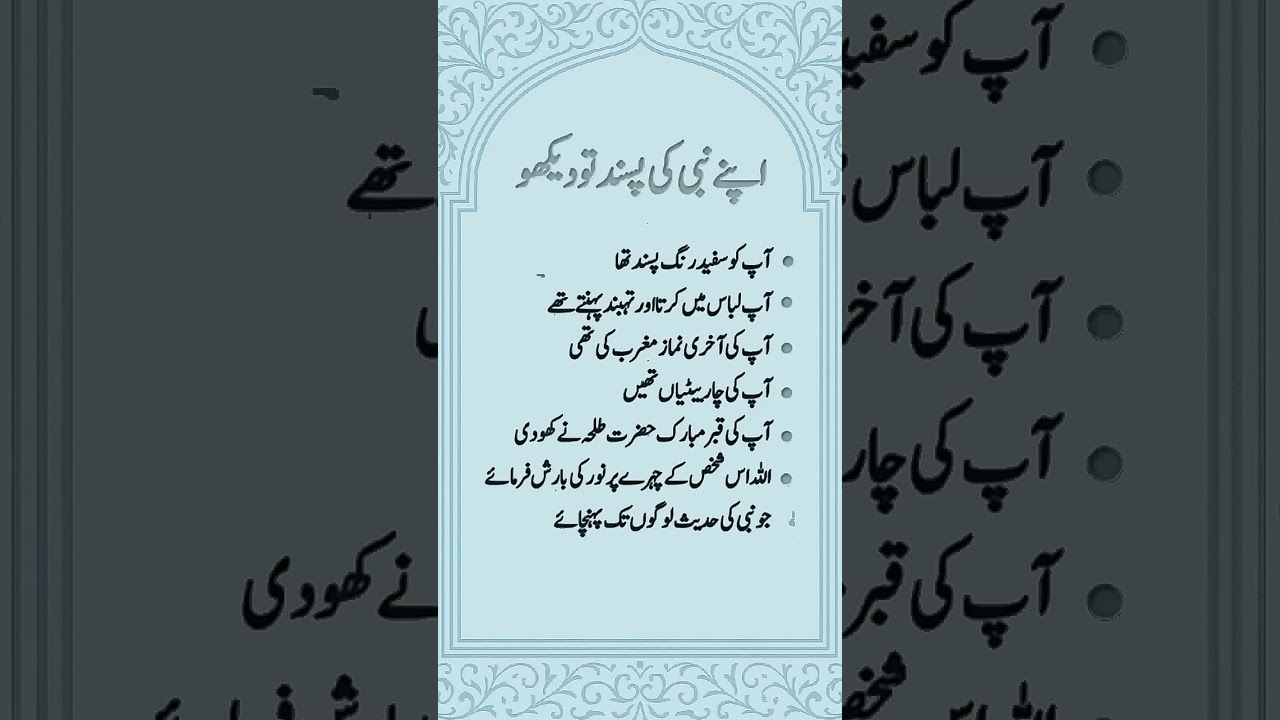 اپنے نبی کی پسند تو دیکھو
آپ کو سفید رنگ پسند تھا
آپ لباس میں کرتا اور تہبند پہنتے تھے
آپ کی آخری نماز مغرب کی تھی
آپ کی چار بیٹیاں تھیں
آپ کی قبر مبارک حضرت طلحہ نے کھودی
اللہ اس شخص کے چہرے پر نور کی بارش فرمائے
جو نبی کی حدیث لوگوں تک پہنچائے